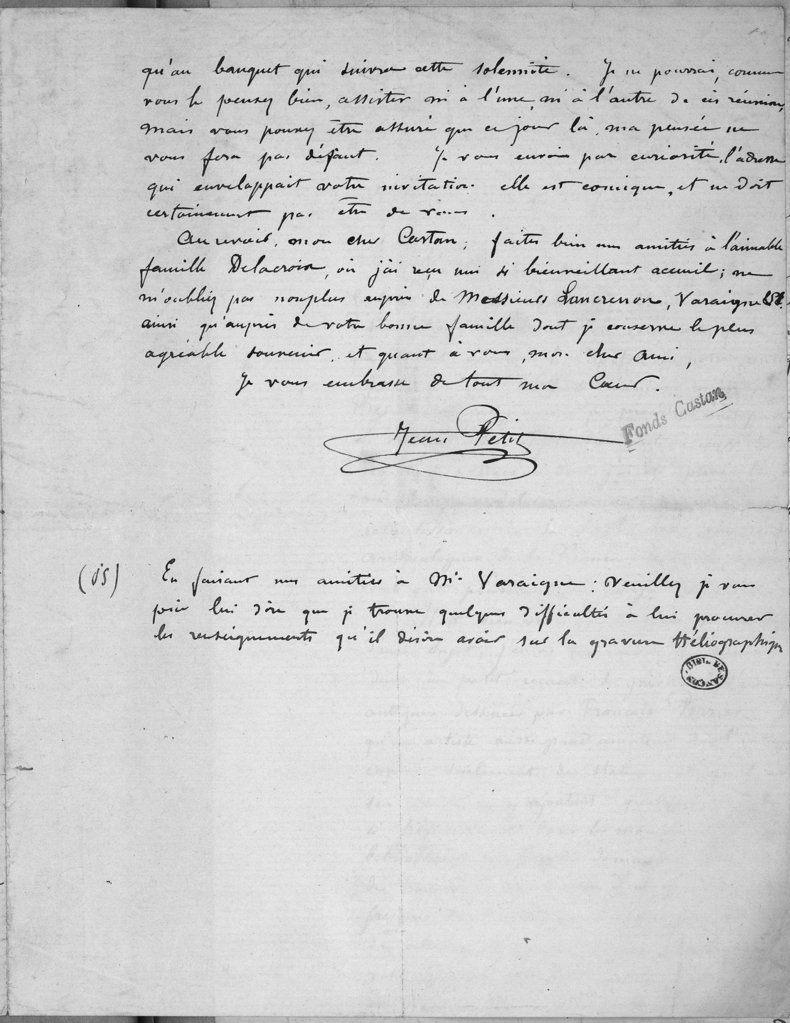 qu'au banquet qui suivra cette solemnité. Je ne pourrai, comme
vous le pensez bien, assister ni à l'une, ni à l'autre de ces réunions,
mais vous pouvez être assuré que ce jour là, ma pensée ne
vous fera pas défaut. Je vous envoie par curiosité, l'adresse
qui enveloppait votre invitation. elle est comique, et ne doit
certainement pas être de vous.
Au revoir, mon cher Castan; faites bien mes amitiés à l'aimable
famille Delacroix, où j'ai reçu un si bienveillant accueil; ne
m'oubliez pas nonplus auprès de Messieurs Lancrenon, Varaigne &&.
ainsi qu'auprès de votre bonne famille dont je conserve le plus
agréable souvenir, et quant à vous, mon cher ami,
Je vous embrasse de tout mon Coeur.
Jean Petit
Fonds Castan
(PS) En faisant mes amitiés à Mr. Varaigne: Veuillez je vous
prie lui dire que je trouve quelques difficultés à lui procurer
les renseignements qu'il désire avoir sur la gravure Héliographique
BIBL. DE BESANÇON